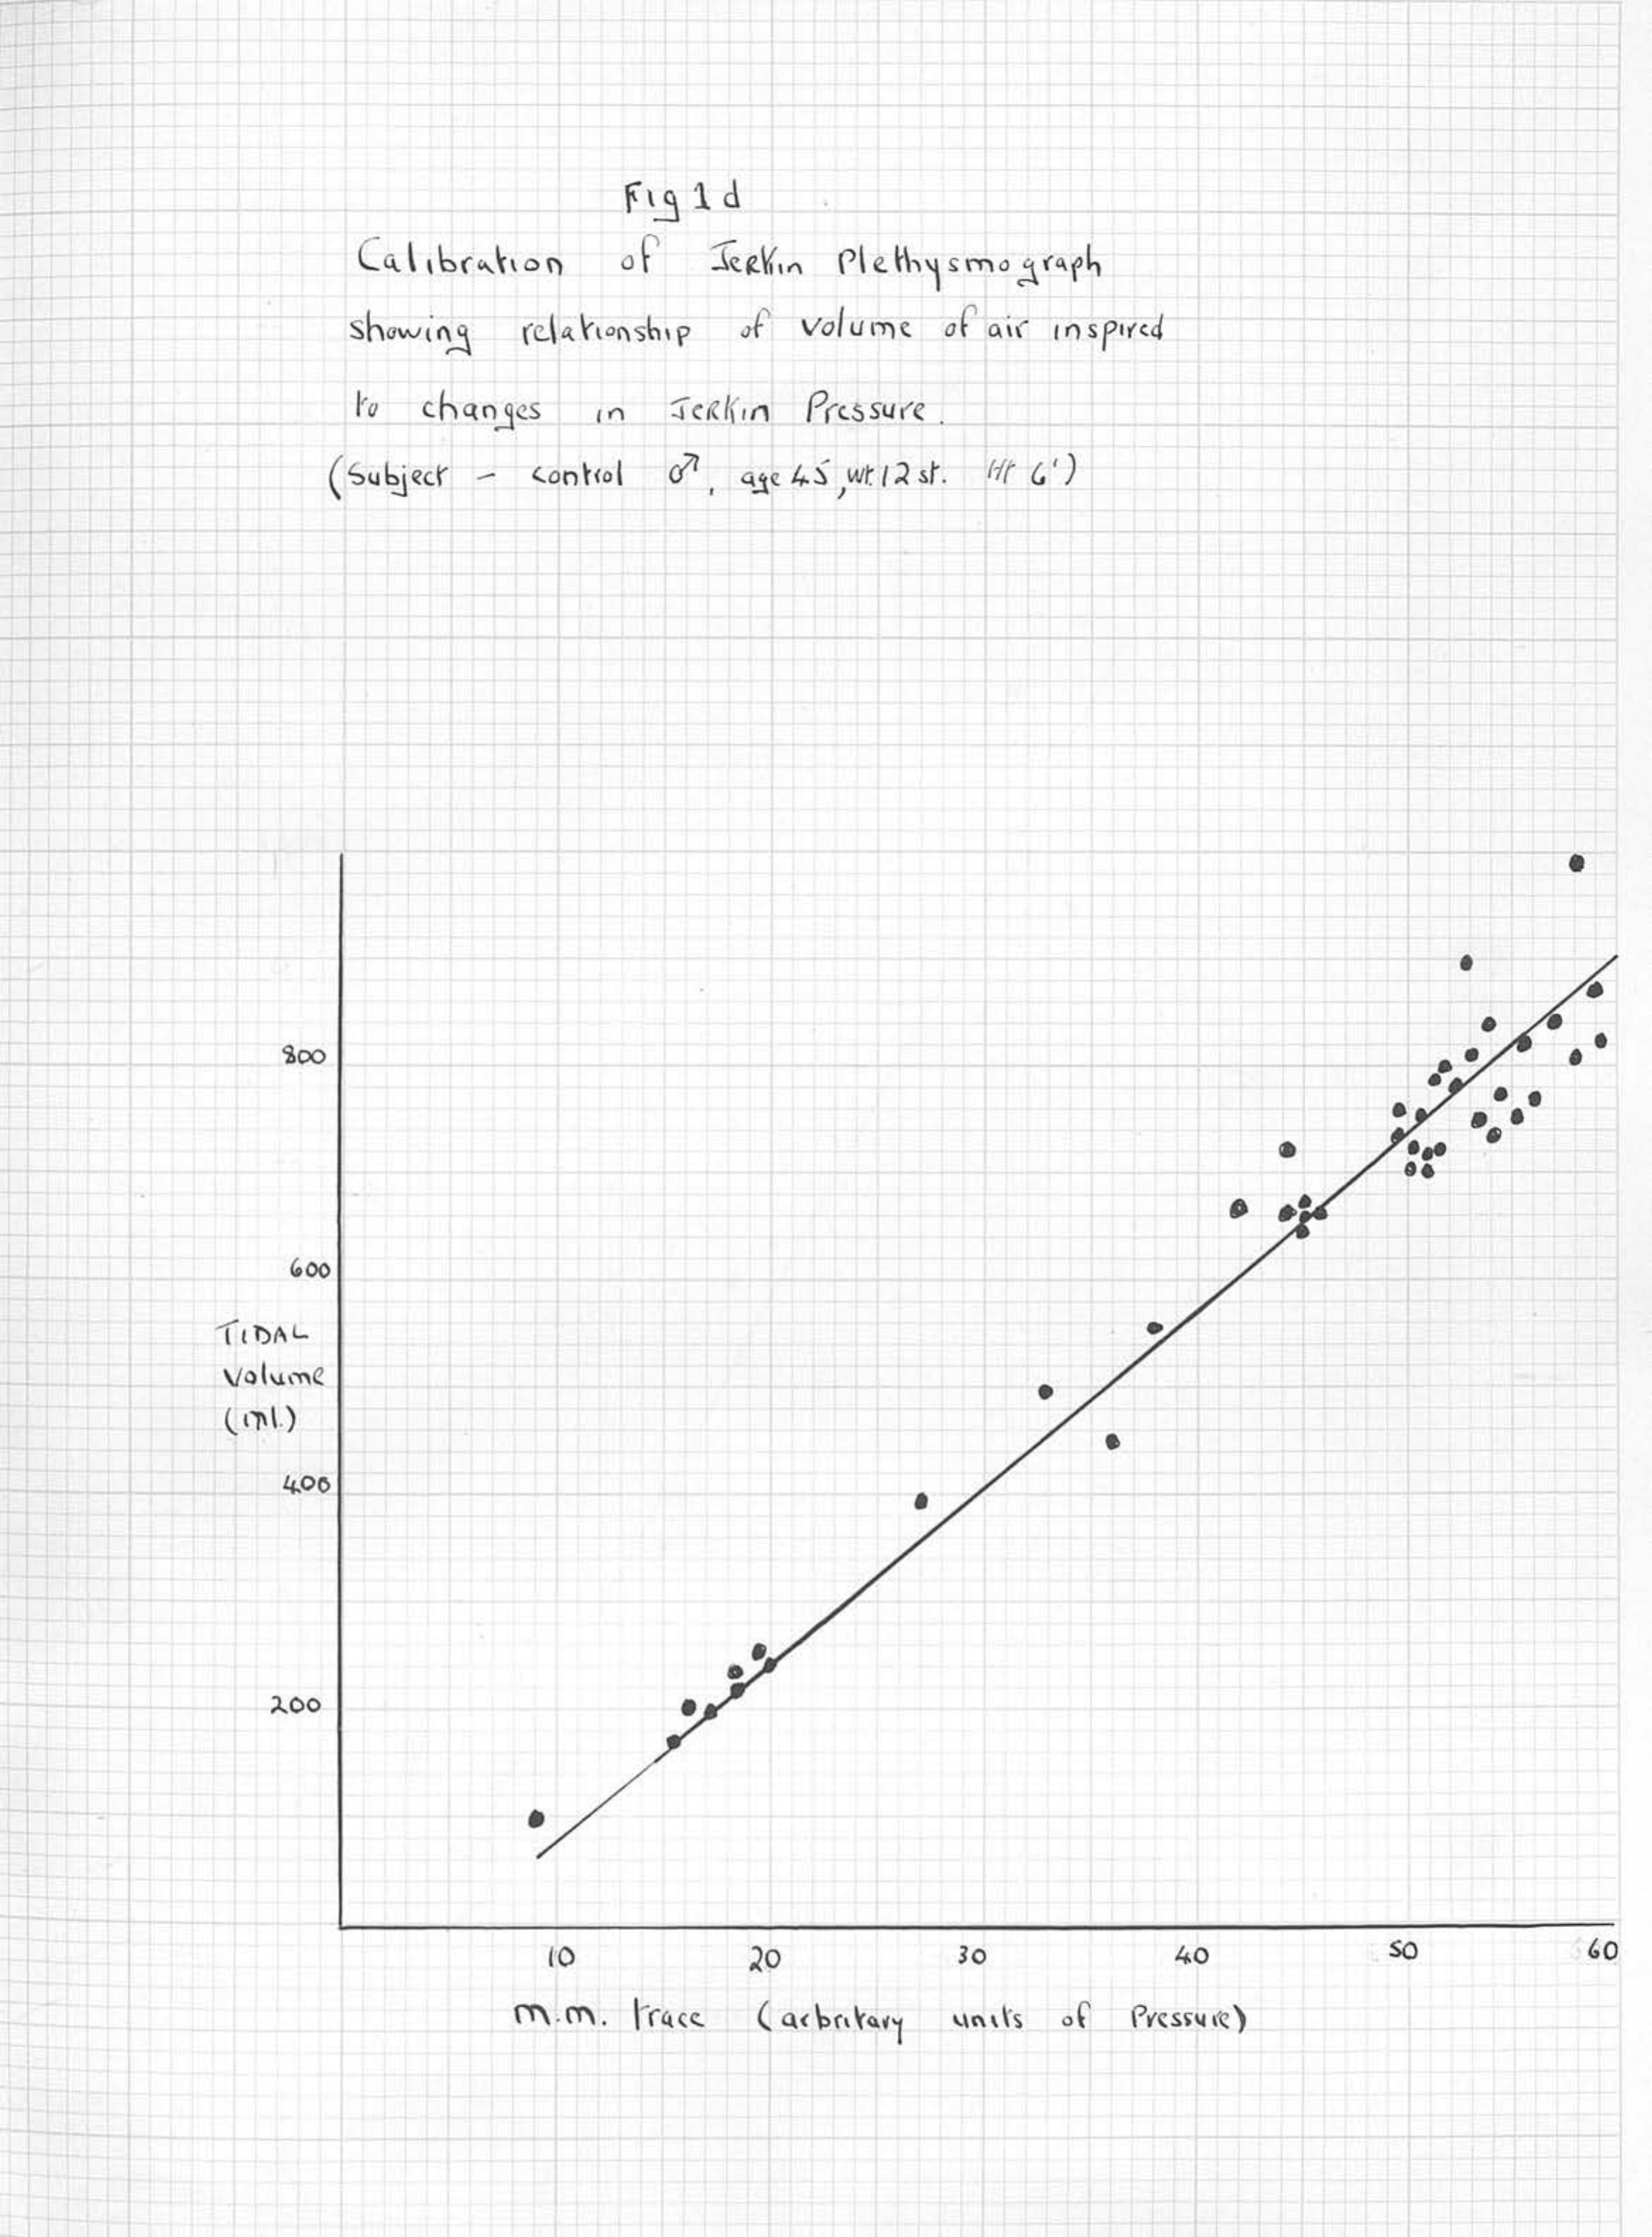 Fig 1 d
Calibration of Jerkin Plethysmograph
showing relationship of volume of air inspired
to changes in Jerkin Pressure.
(Subject - control ♂, age 45, wt. 12 st. Ht 6')
800
600
TIDAL
Volume
(ml.)
400
200
10 20 30 40 50 60
m.m. trace (arbritary units of Pressure)